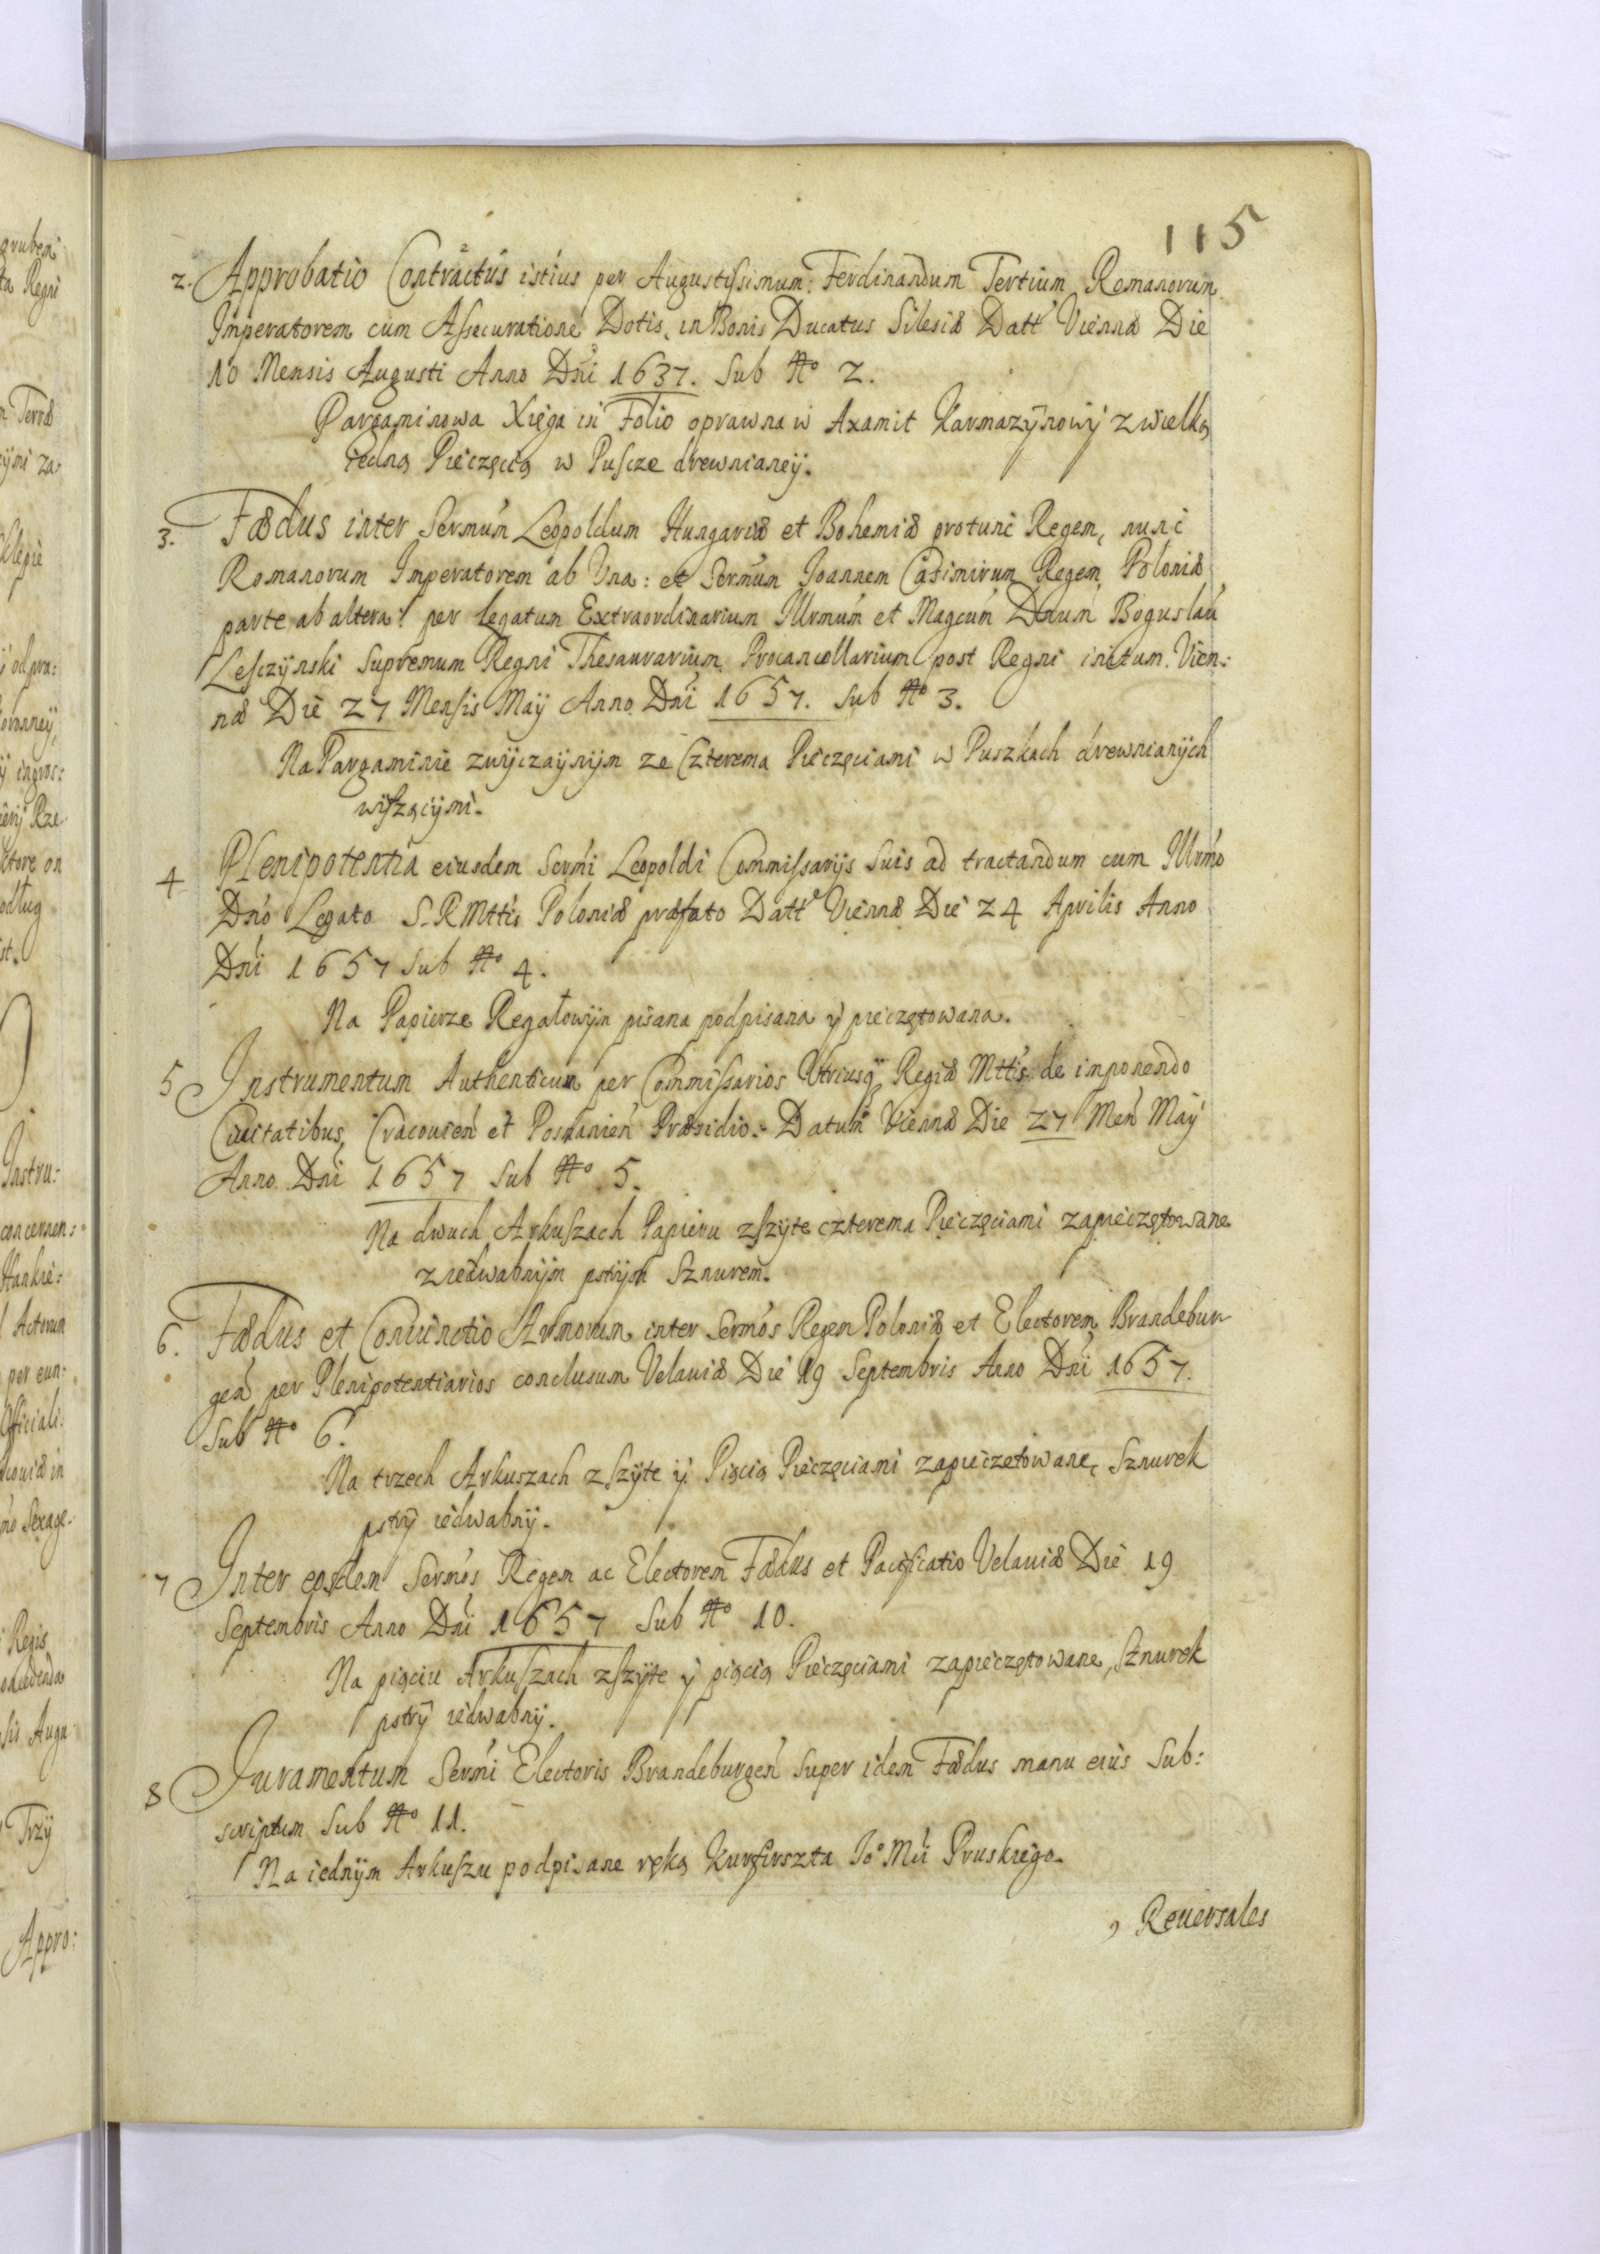 115
2. Approbatio Contractûs istius per Augustissimum Ferdinandum Tertium Romanorum
Imperatorem cum Assecuratione Dotis, in Bonis Ducatus Silesiæ Datt Viennæ Die
10 Mensis Augusti Anno Dñi 1637. Sub No 2.
Pargaminowa Xięga in Folio oprawna w Axamit Karmazÿnowÿ z wielką
iedną Pieczęcią w Puscze drewnianeÿ.
3. Fædus inter Sermũm Leopoldum Hungariæ et Bohemiæ protunc Regem, nunc
Romanorum Imperatorem ab Una: et Sermũm Joannem Casimirum Regem Poloniæ
parte ab altera: per Legatum Extraordinarium Illrmũm et Magcũm Dnũm Boguslaũ
Lesczÿnski Supremum Regni Thesaurarium Procancellarium post Regni initum. Vien:
næ Die 27 Mensis Maÿ Anno Dñi 1657. sub No 3.
Na Pargaminie zwÿczaÿnÿm ze Czterema Pieczęciami w Puszkach drewnianÿch
wiszącÿmi.
4 Plenipotentia eiusdem Sermi Leopoldi Commissarÿs suis ad tractandum cum Illrmo
Dno Legato S. R Mttis Poloniæ præfato Datt Viennæ Die 24 Aprilis Anno
Dñi 1657 sub No 4.
Na Papierze Regałowÿm pisana podpisana ÿ pieczętowana.
5 Instrumentum Authenticum per Commissarios Utriusq Regiæ Mttis de imponendo
Ciuitatibus, Cracouień et Posnanień Præsidio. Datum Viennæ Die 27 Meń Maÿ
Anno Dñi 1657 sub No 5.
Na dwuch Arkuszach Papieru zszÿte czterema Pieczęciami zapieczętowane
z iedwabnÿm pstrÿm Sznurem.
6. Fædus et Coniunctio Armorum inter Sermos Regem Poloniæ et Electorem Brandebur
geń per Plenipotentiarios conclusum Velauiæ Die 19 Septembris Anno Dñi 1657.
Sub No 6.
Na trzech Arkuszach zszÿte ÿ Pięcią Pieczęciami zapieczetowane, Sznurek
pstrÿ iedwabnÿ.
7 Inter eosdem Sermos Regem ac Electorem Fædus et Pacificatio Velauiæ Die 19
Septembris Anno Dñi 1657 Sub No 10.
Na pięciu Arkuszach zszÿte ÿ pięcią Pieczęciami zapieczętowane, Sznurek
pstrÿ iedwabnÿ.
8 Juramentum Sermi Electoris Brandeburgeń super idem Fædus manu eius sub:
scriptum Sub No 11.
Na iednÿm Arkuszu podpisane ręką Kurfirszta Jo Mci Pruskiego.
9 Reuersales